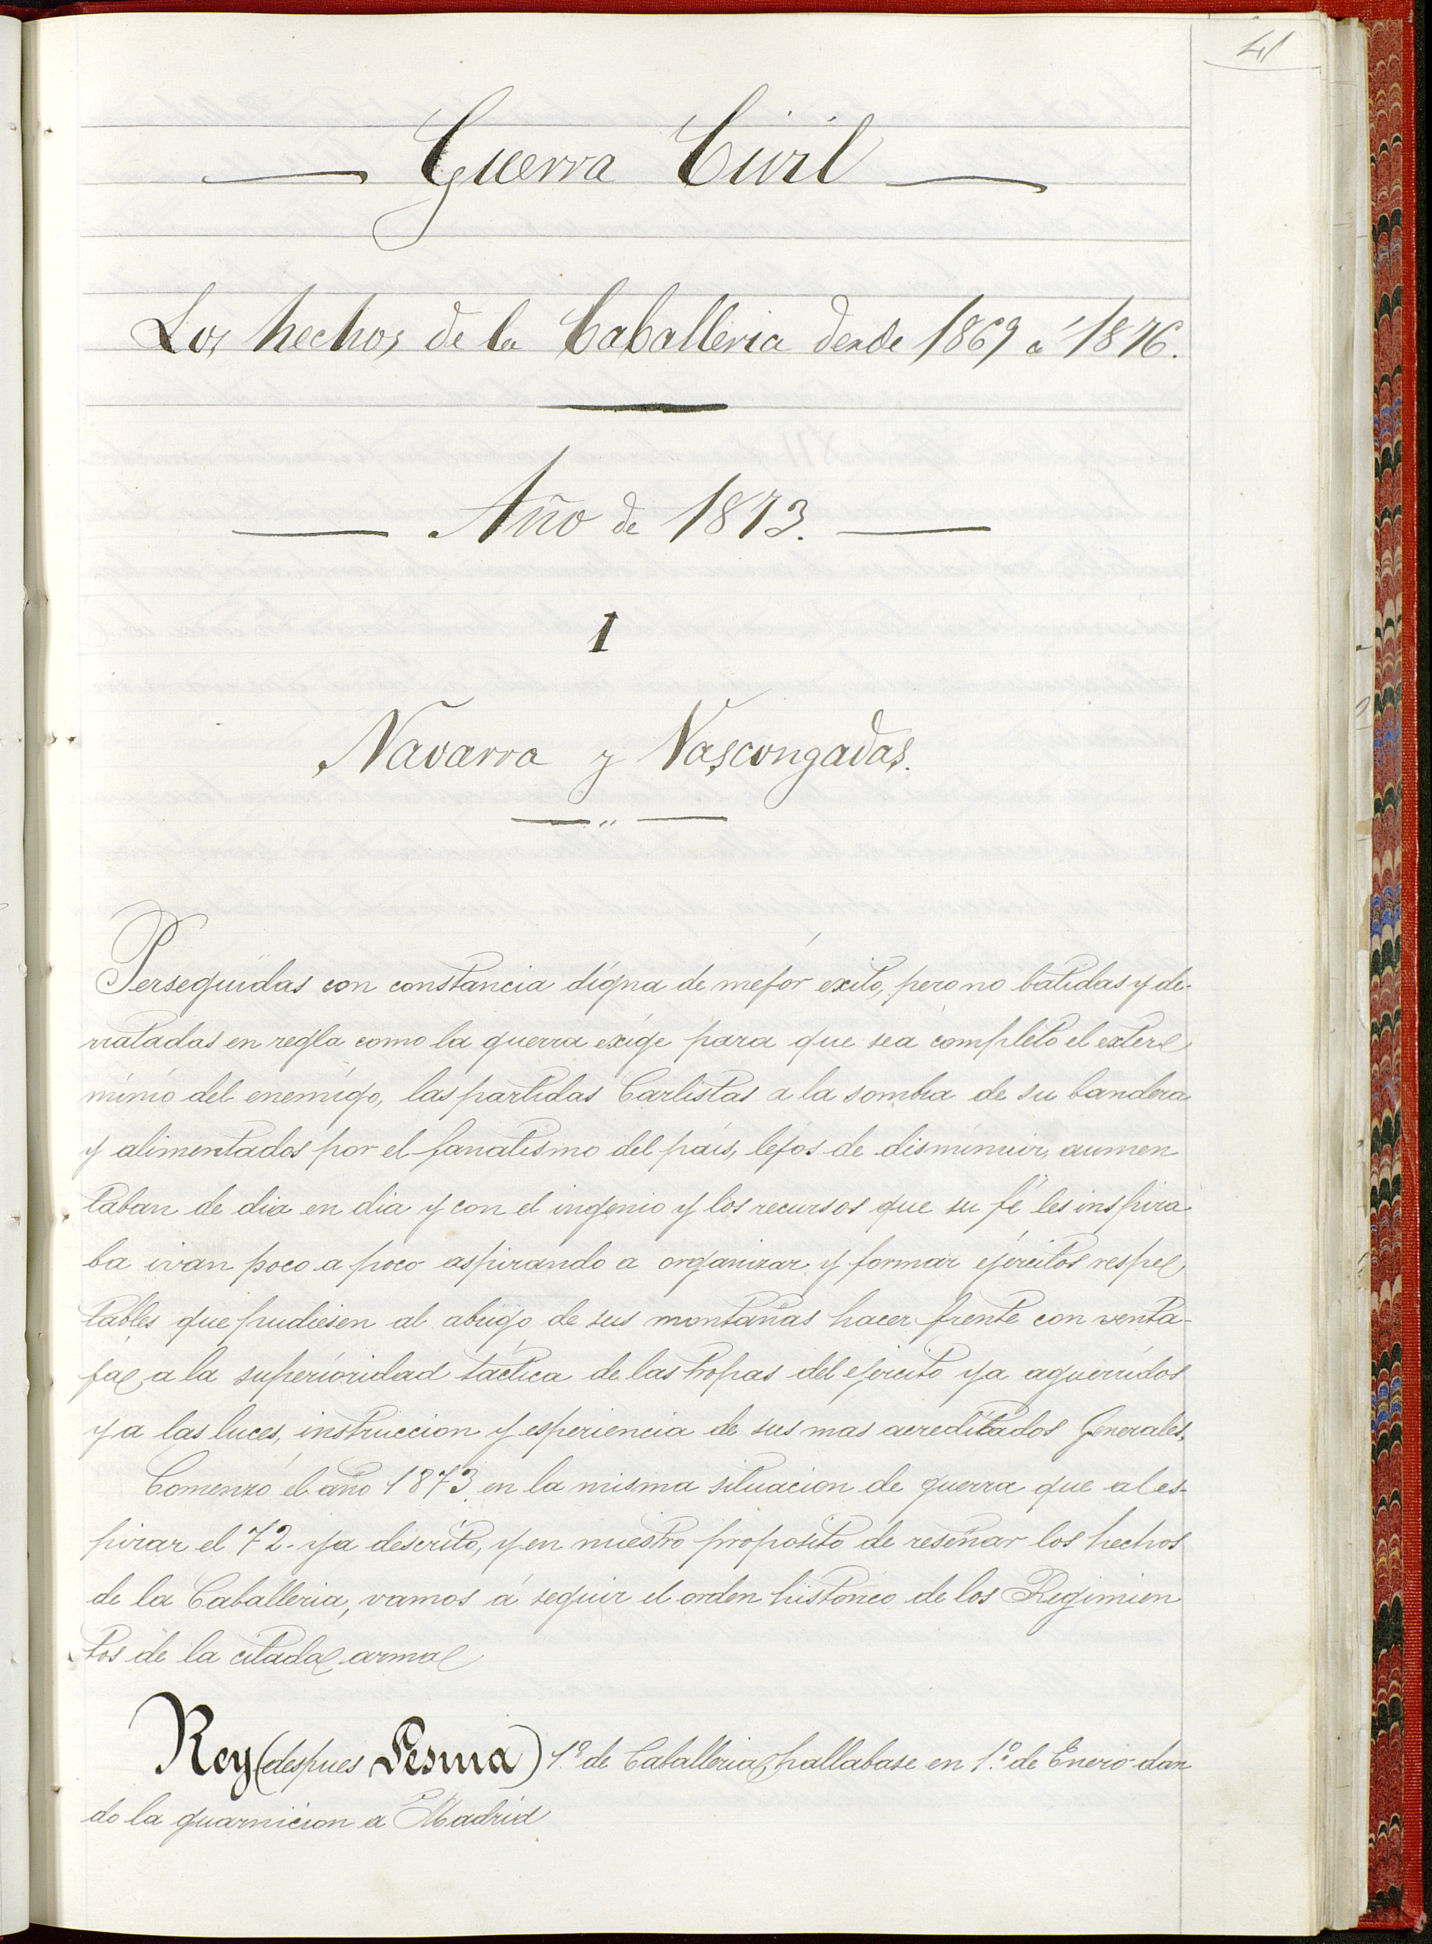 41
Guerra Civil
Los hechos de la Caballeria desde 1869 á 1876.
Año de 1873.
I
Navarra y Vascongadas.
Perseguidas con constancia digna de mejor exito, pero no batidas y de-
rratadas en regla como la guerra exige para que sea completo el exter
minio del enemigo, las partidas Carlistas a la sombra de su bandera
y alimentados por el fanatismo del pais, lejos de disminuir, aumen
taban de dia en dia y con el ingenio y los recursos que su fé les inspira
ba ivan poco a poco aspirando a organizar y formar ejércitos respe
tables que pudiesen al abrigo de sus montañas hacer frente con venta-
ja a la superioridad táctica de las tropas del ejercito ya aguerridos
y a las luces, instruccion y esperiencia de sus mas acreditados Generales.
Comenzó el año 1873 en la misma situacion de guerra que al es-
pirar el 72 ya descrito, y en nuestro proposito de reseñar los hechos
de la Caballeria, vamos á seguir el orden histórico de los Regimien
tos de la citada arma
Rey (despues Lesma) 1.º de Caballeria, hallabase en 1.º de Enero dan
do la guarnicion a Madrid